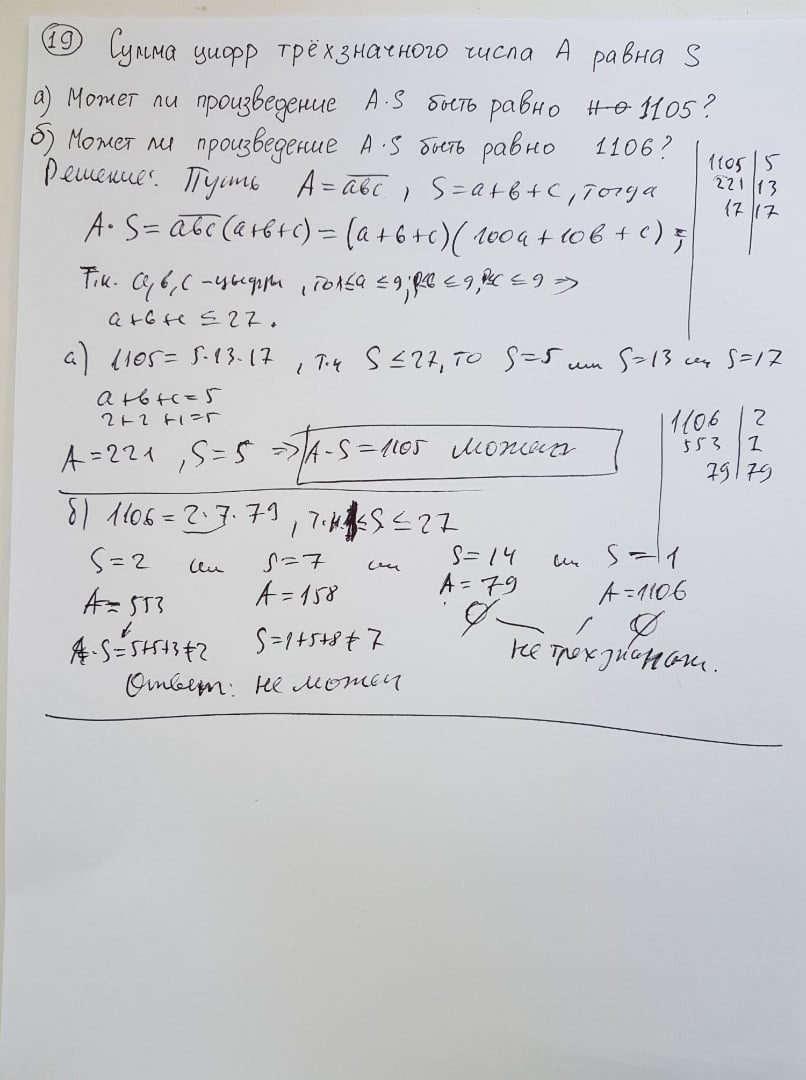 19 Сумма цифр трёхзначного числа A равна S
а) Может ли произведение A·S быть равно 1105?
б) Может ли произведение A·S быть равно 1106?
1105 | 5
221 | 13
17 | 17
Решение: Пусть A = abc, S=a+b+c, тогда
A·S = abc(a+b+c) = (a+b+c)(100a+10b+c);
Т.к. a,b,c – цифры, то 1≤a ≤9; 0≤b ≤9, 0≤c ≤9 ⇒
a+b+c ≤ 27.
а) 1105 = 5·13·17, т.к S ≤ 27, то S=5 или S=13 или S=17
a+b+c=5
2+2+1=5
A=221, S=5 ⇒ A·S=1105 может
1106 | 2
553 | 7
79 | 79
б) 1106 = 2·7·79, т.к. 1≤S ≤ 27
S=2 или S=7 или S=14 или S=1
A=553 A=158 A=79 A=1106
∅ ∅
S=5+5+3≠2 S=1+5+8≠7 не трехзначн.
Ответ: не может